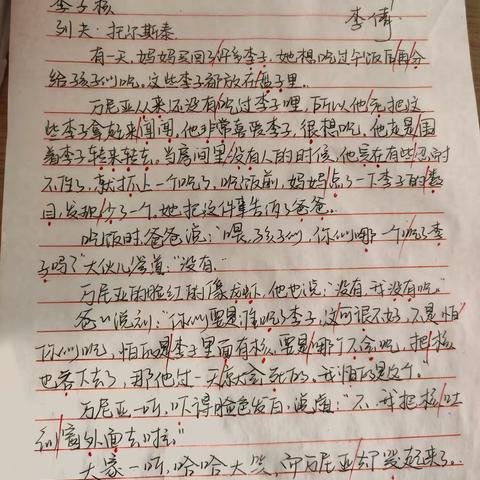 李子核 李倩
列夫·托尔斯泰
有一天,妈妈买回了许多李子,她想吃过午饭后再分
给孩子们吃,这些李子都放在盘子里。
万尼亚从来还没有吃过李子哩,所以他先把这
些李子拿起来闻闻,他非常喜爱李子,很想吃,他老是围
着李子转来转去,当房间里没有人的时候,他实在有些忍耐
不住了,就抓上一个吃了,吃饭前,妈妈点了一下李子的数
目,发现少了一个,她把这件事告诉了爸爸。
吃饭时,爸爸说:“喂,孩子们,你们哪一个吃了李
子吗?”大伙儿答道:“没有。
万尼亚的脸红的像龙虾,他也说:“没有,我没有吃。”
爸爸说到:“你们要是谁吃了李子,这可很不好,不是怕
你们吃,怕的是李子里面有核,要是哪个不会吃,把核
也吞下去了,那他过一天就会死的,我怕的是这个。”
万尼亚一听,吓得脸色发白,说道:“不,我把核吐
到窗外面去啦。”
大家一听,哈哈大笑,而万尼亚却哭起来了。